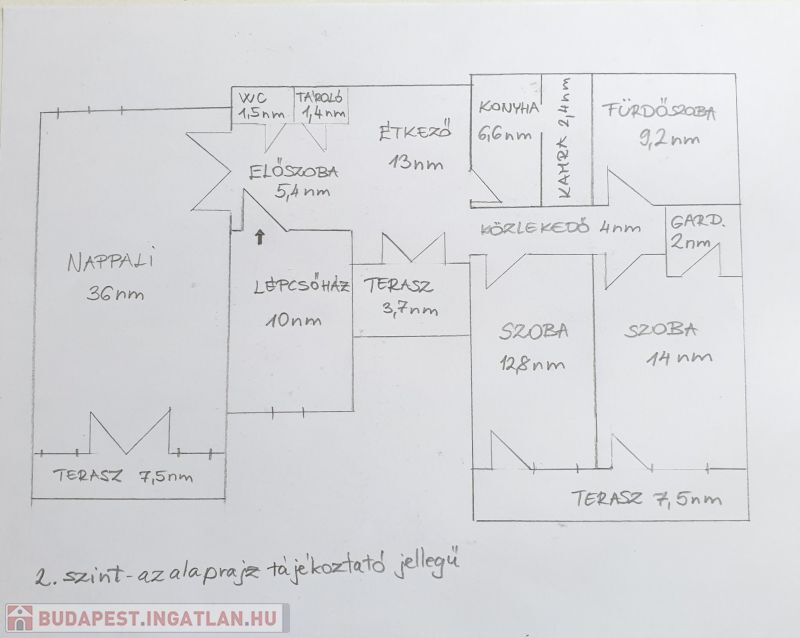 WC
1,5nm
TÁROLÓ
1,4nm
ÉTKEZŐ
13nm
KONYHA
6,6nm
KAMRA 2,4nm
FÜRDŐSZOBA
9,2nm
ELŐSZOBA
5,4nm
KÖZLEKEDŐ 4nm
GARD.
2nm
NAPPALI
36nm
LÉPCSŐHÁZ
10nm
TERASZ
3,7nm
SZOBA
12,8nm
SZOBA
14nm
TERASZ 7,5nm
TERASZ 7,5nm
2. szint-az alaprajz tájékoztató jellegű
BUDAPEST.INGATLAN.HU